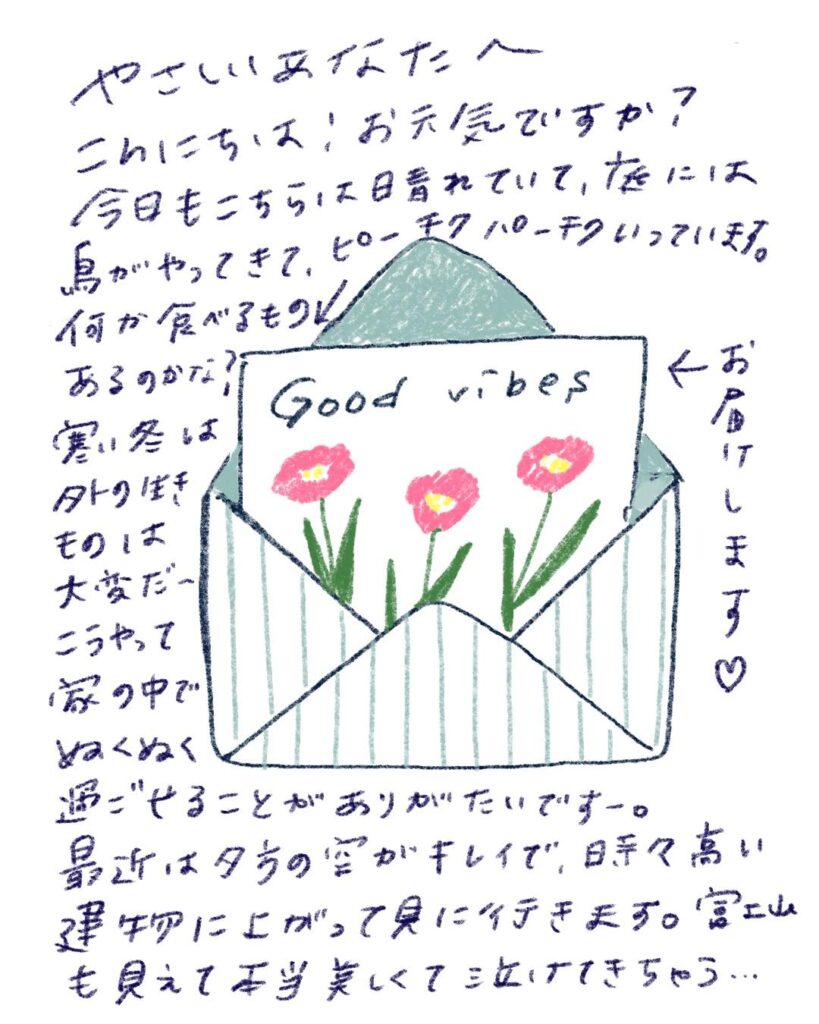 やさしいあなたへ
こんにちは！お元気ですか？
今日もこちらは日晴れていて、庭には
鳥がやってきて、ピーチクパーチクいっています。
何か食べるもの
あるのかな？
寒い冬は
外の生き
ものは
大変だー
こうやって
家の中で
ぬくぬく
過ごせることがありがたいですー。
最近は夕方の空がキレイで、時々高い
建物に上がって見に行きます。富士山
も見えて本当美しくて泣けてきちゃう…
Good vibes
←お届けします♡